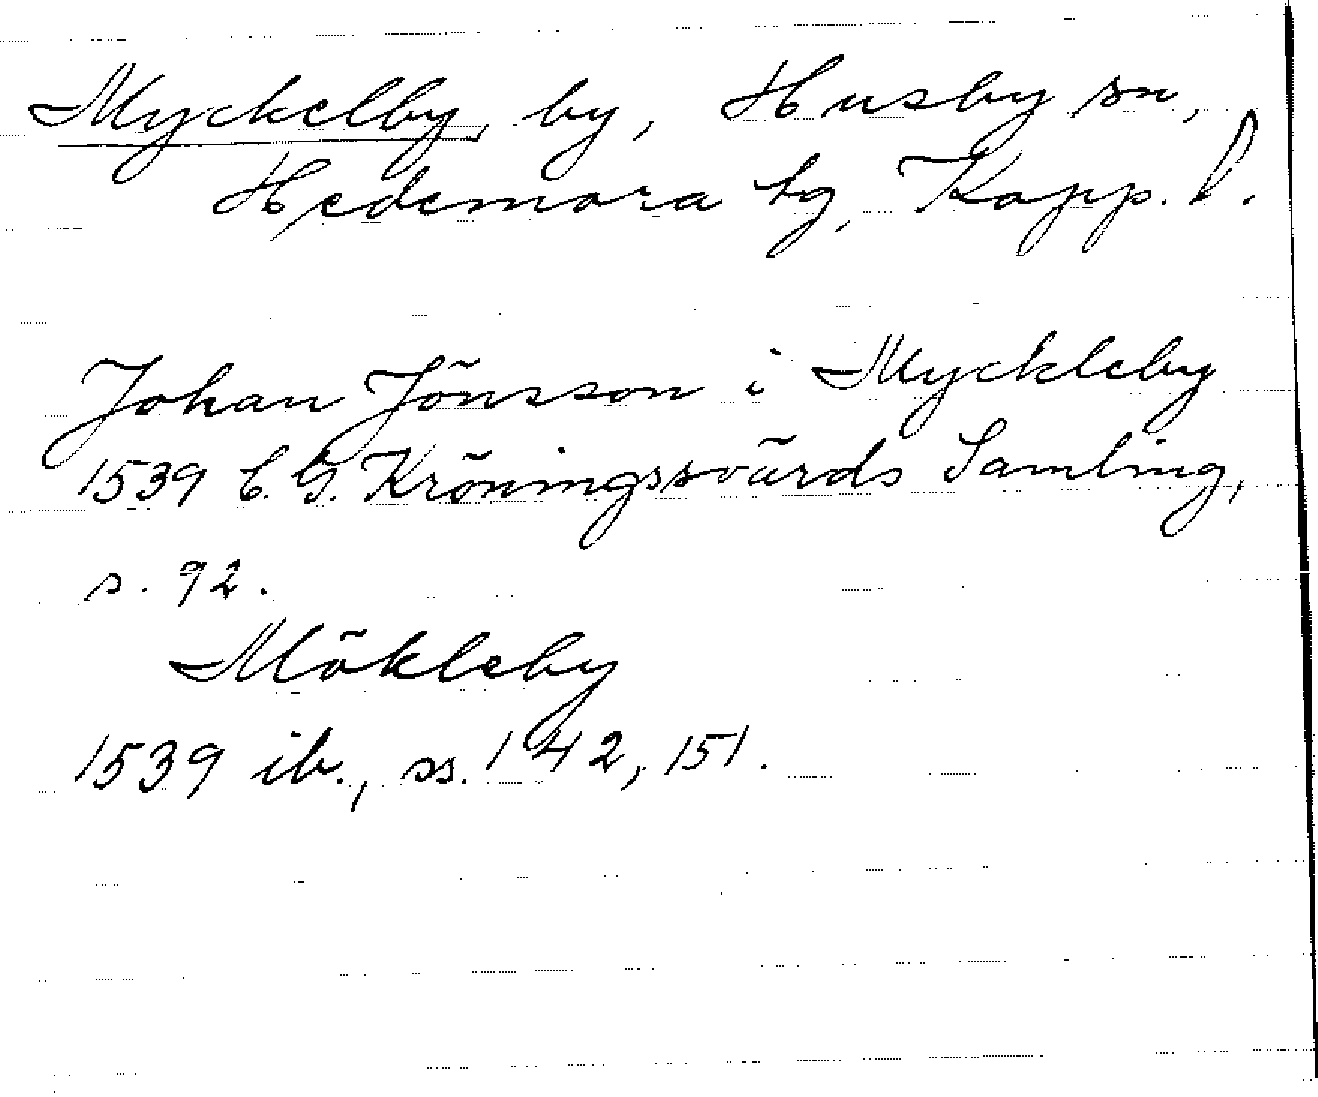 Myckelby, by, Husby sn,
Hedemora tg, Kopp. l.
Johan Jönsson i Myckleby
1539 C. G. Kröningssvärds Samling,
s. 92.
Mökleby
1539 ib., ss. 142, 151.